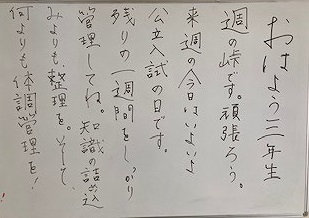 おはよう三年生
週の峠です。頑張ろう。
来週の今日はいよいよ
公立入試の日です。
残りの一週間をしっかり
管理してね。知識の詰め込
みよりも、整理を。そして、
何よりも体調管理を!